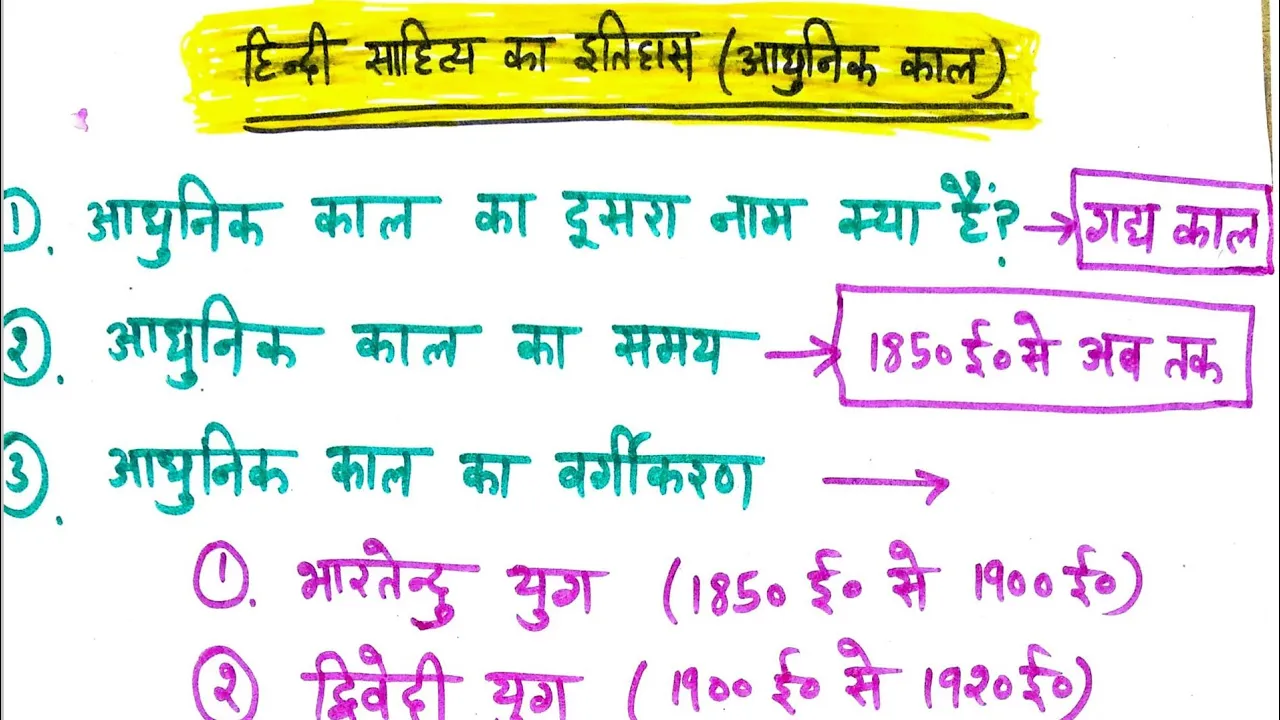 हिन्दी साहित्य का इतिहास (आधुनिक काल)
①. आधुनिक काल का दूसरा नाम क्या हैं? → गद्य काल
②. आधुनिक काल का समय → 1850 ई० से अब तक
③. आधुनिक काल का वर्गीकरण →
①. भारतेन्दु युग (1850 ई० से 1900 ई०)
② द्विवेदी युग (1900 ई० से 1920 ई०)